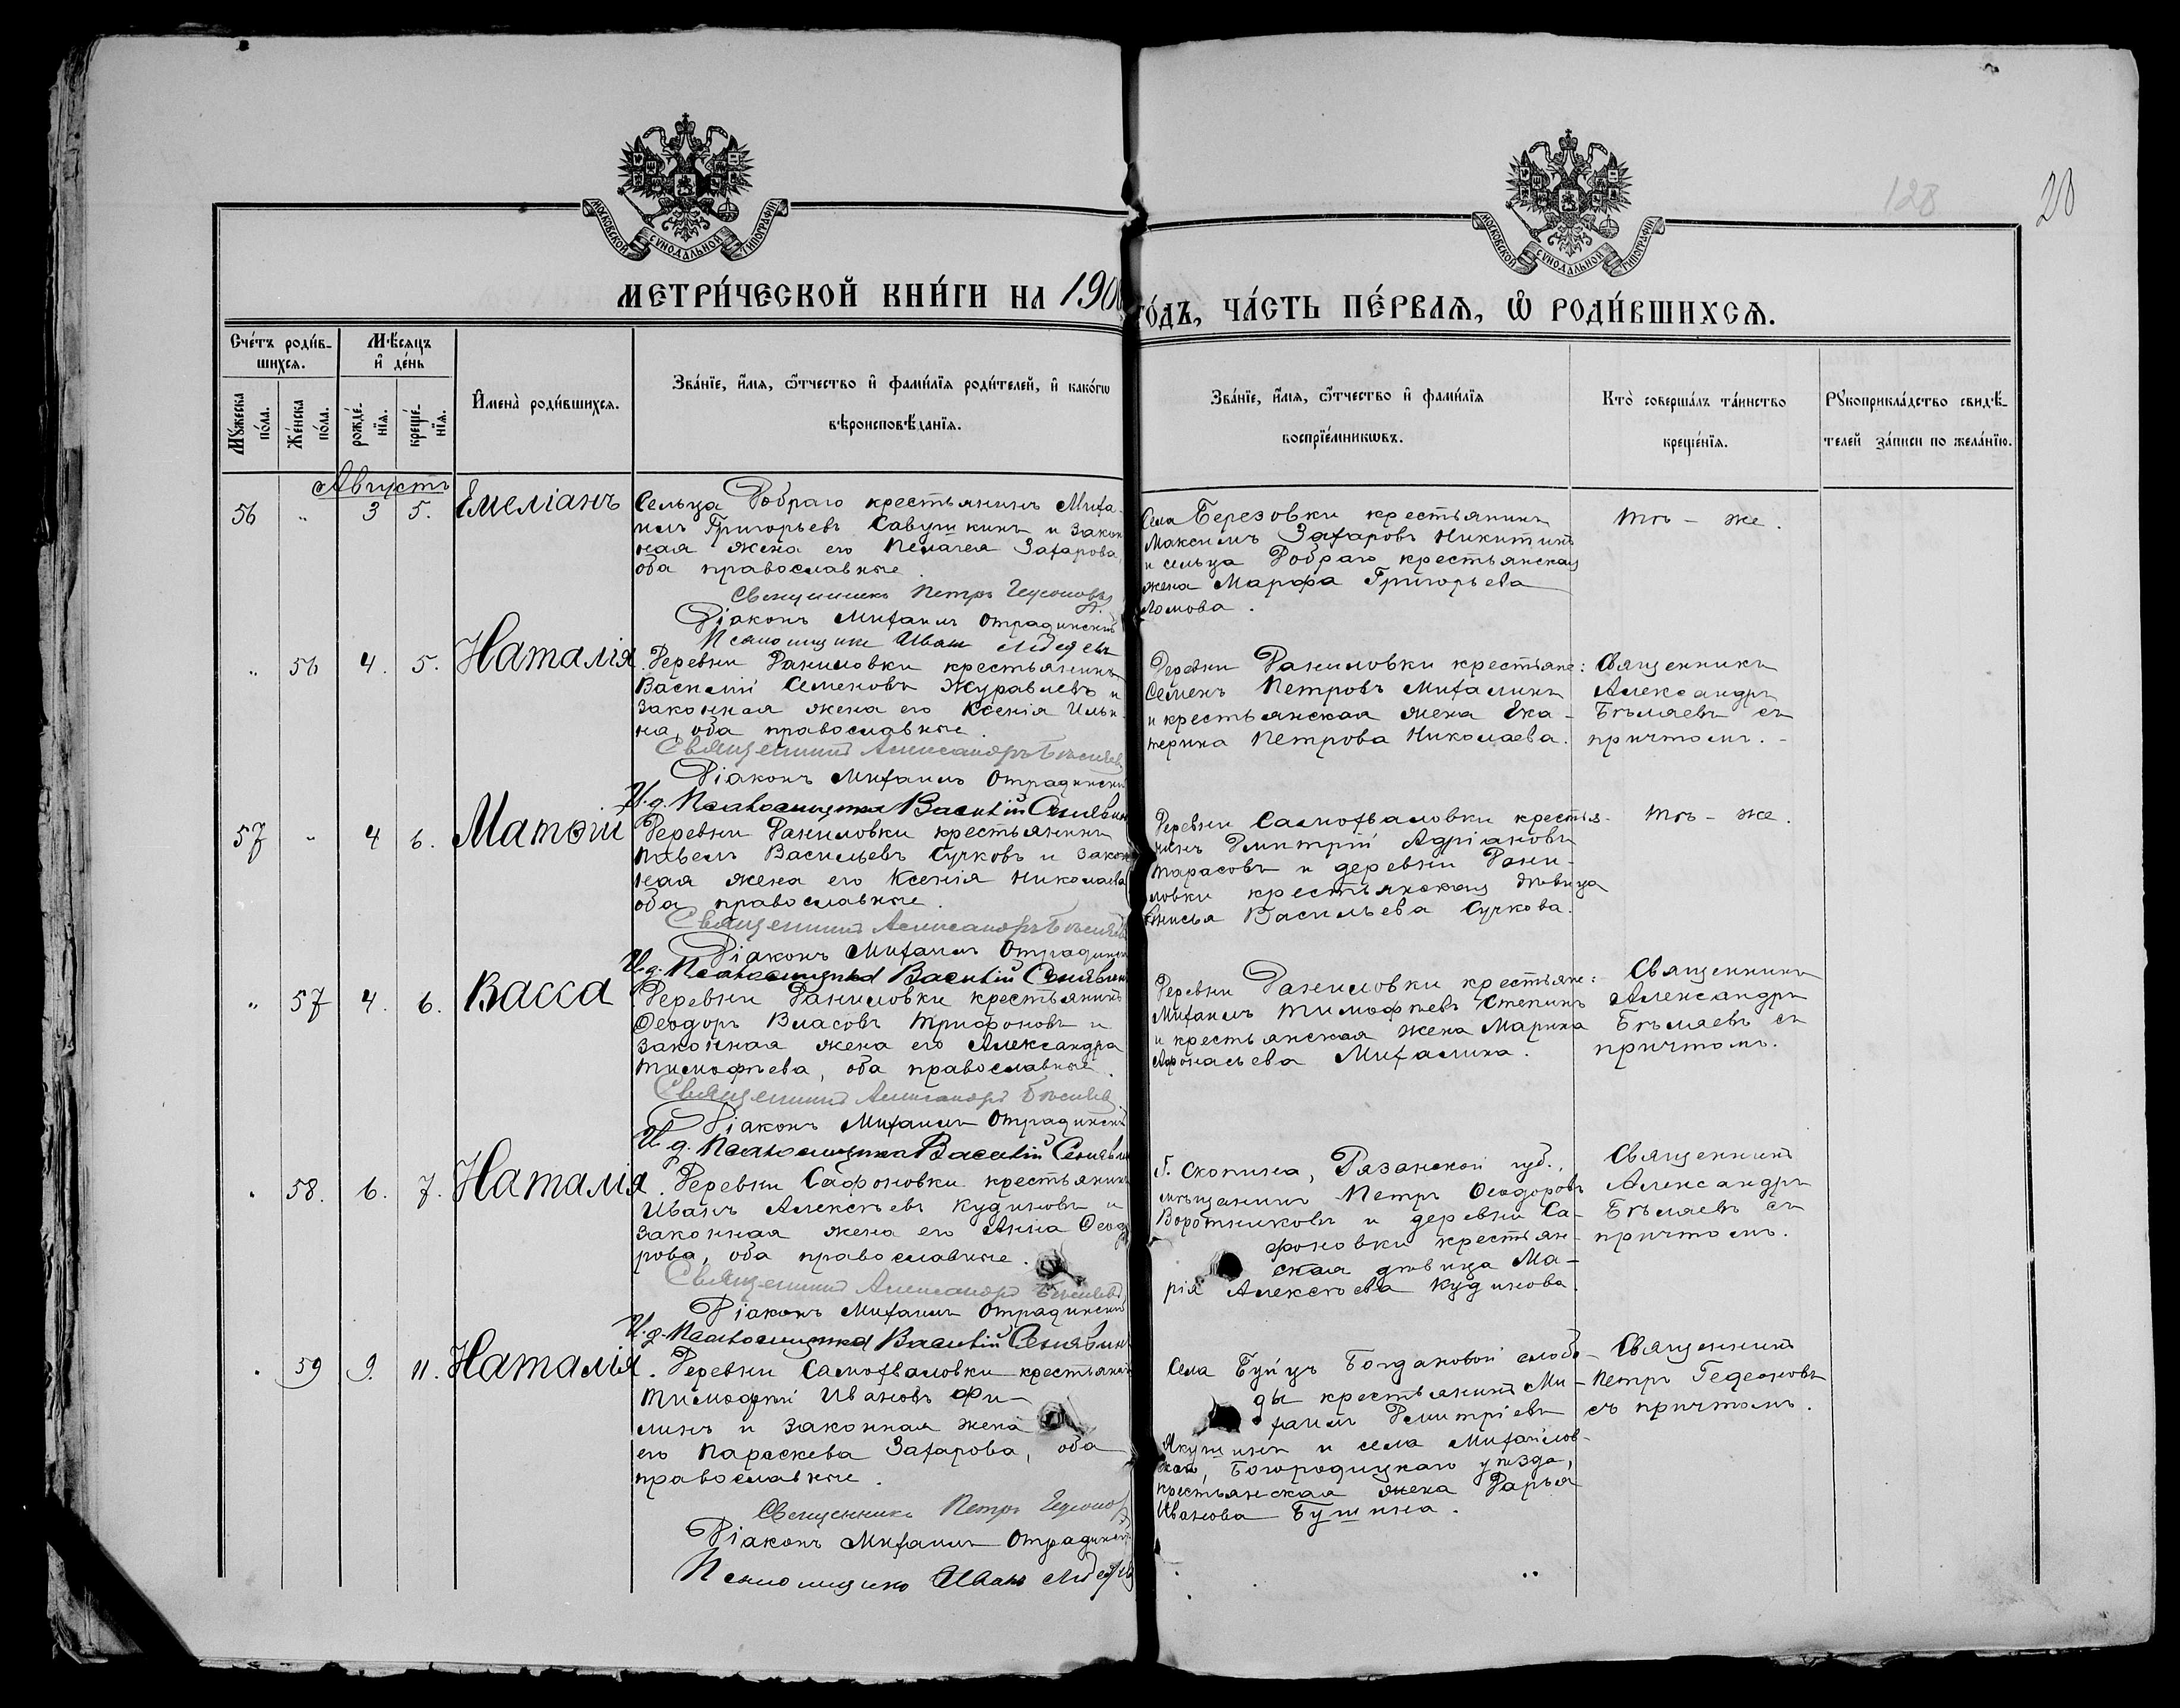 128
20
МОСКОВСКОЙ СѴНОДАЛЬНОЙ ТИПОГРАФІИ
МОСКОВСКОЙ СѴНОДАЛЬНОЙ ТИПОГРАФІИ
МЕТРИ́ЧЕСКОЙ КНИ́ГИ НА 190
ГО́ДЪ, ЧА́СТЬ ПЕ́РВАѦ, Ѡ РОДИ́ВШИХСѦ.
Сче́тъ роди́в-
шихсѧ.
Мѣ́сяцъ
и҆ де́нь
Мꙋ́жеска
по́ла.
Же́нска
по́ла.
рожде́-
нїѧ.
креще́-
нїѧ.
И҆мена̀ роди́вшихсѧ.
Зва́нїе, и҆́мѧ, ѻ҆́тчество и҆ фами́лїѧ роди́телей, и҆ како́гѡ
вѣроисповѣ́данїѧ.
Зва́нїе, и҆́мѧ, ѻ҆́тчество и҆ фами́лїѧ
воспрїе́мникѡвъ.
Кто̀ соверша́лъ та́инство
креще́нїѧ.
Рꙋкоприкла́дство свидѣ́-
телей за́писи по жела́нїю.
Августъ
56 " 3 5. Емеліанъ
Сельца Добраго крестьянинъ Миха-
илъ Григорьевъ Савушкинъ и закон
ная жена его Пелагея Захарова,
оба православные.
Священникъ Петръ Гедеоновъ
Діаконъ Михаилъ Отрадинскій
Псаломщикъ Иванъ
Села Березовки крестьянинъ
Максимъ Захаровъ Никитинъ
и сельца Добраго крестьянская
жена Марфа Григорьева
Ломова.
тѣ - же.
" 56 4. 5. Наталія
Деревни Даниловки крестьянинъ
Василій Семеновъ Журавлевъ и
законная жена его Ксенія Ильи-
на, оба православные.
Священникъ Александръ Бѣляевъ
Діаконъ Михаилъ Отрадинскій
И. д. Псаломщика Василій Синявин
Деревни Даниловки крестьяне:
Семенъ Петровъ Михалинъ
и крестьянская жена Ека-
терина Петрова Николаева.
Священникъ
Александръ
Бѣляевъ съ
причтомъ. -
57 " 4 6. Матѳій
Деревни Даниловки крестьянинъ
Павелъ Васильевъ Сучковъ и закон
ная жена его Ксенія Николаева
оба православные.
Священникъ Александръ Бѣляевъ
Діаконъ Михаилъ Отрадинскій
И. д. Псаломщика Василій Синявин
Деревни Самохваловки крестья-
нинъ Дмитрій Адріановъ
Тарасовъ и деревни Дани-
ловки крестьянская дѣвица
Анисья Васильева Сучкова.
тѣ - же.
" 57 4. 6. Васса
Деревни Даниловки крестьянинъ
Ѳеодоръ Власовъ Трифоновъ и
законная жена его Александра
Тимофѣева, оба православные.
Священникъ Александръ Бѣляевъ
Діаконъ Михаилъ Отрадинскій
И. д. Псаломщика Василій Синявин
Деревни Даниловки крестьяне:
Михаилъ Тимофѣевъ Степинъ
и крестьянская жена Марина
Афонасьева Михалина.
Священникъ
Александръ
Бѣляевъ съ
причтомъ.
" 58. 6. 7. Наталія
Деревни Сафоновки крестьянинъ
Иванъ Алексѣевъ Кудиновъ и
законная жена его Анна Ѳеодо
рова, оба православные.
Священникъ Александръ Бѣляевъ
Діаконъ Михаилъ Отрадинскій
И. д. Псаломщика Василій Синявин
г. Скопина, Рязанской губ.,
мѣщанинъ Петръ Ѳеодоровъ
Воротниковъ и деревни Са-
фоновки крестьян-
ская дѣвица Ма-
рія Алексѣева Кудинова.
Священникъ
Александръ
Бѣляевъ съ
причтомъ.
" 59 9. 11. Наталія
Деревни Самохваловки крестьянинъ
Тимофей Ивановъ Фи-
линъ и законная жена
его Параскева Захарова, оба
православные.
Священникъ Петръ Гедеоновъ
Діаконъ Михаилъ Отрадинскій
Псаломщикъ Иванъ
Села Буйцъ Богдановой слобо-
ды крестьянинъ Ми-
хаилъ Дмитріевъ
Якушинъ и села Михайлов-
скаго, Богородицкаго уѣзда,
крестьянская жена Дарья
Иванова Бушина.
Священникъ
Петръ Гедеоновъ
съ причтомъ.